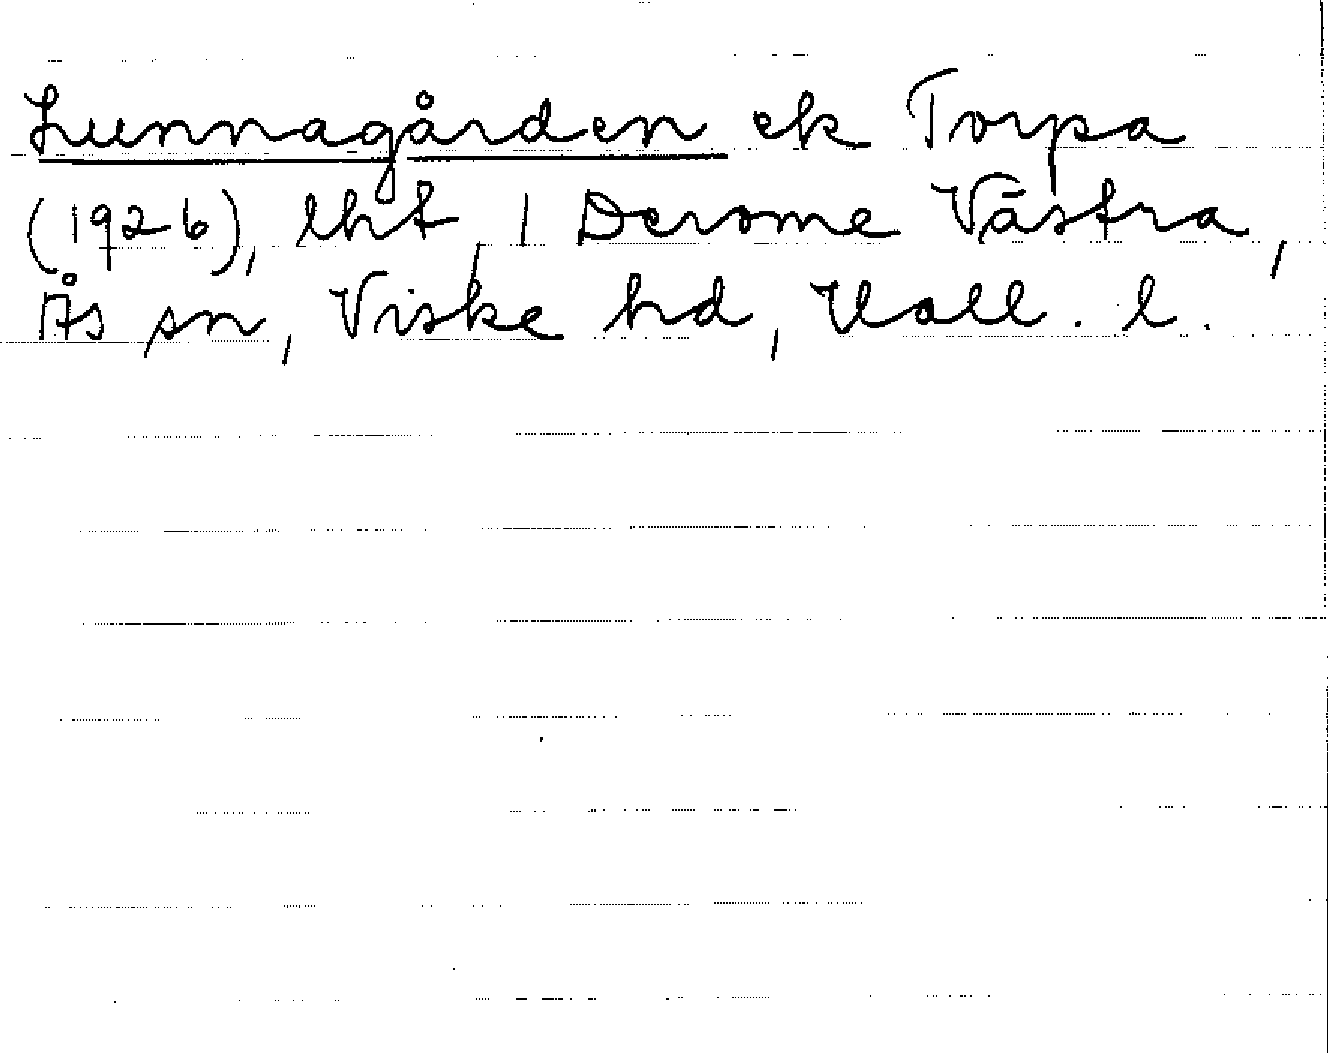 Lunnagården ek Torpa
(1926), lht, 1 Derome Västra,
Ås sn, Viske hd, Hall. l.